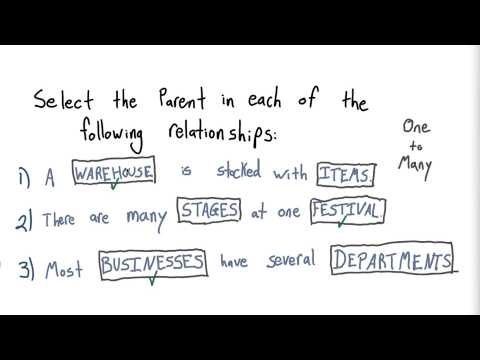 Select the Parent in each of the
following relationships:
One
to
Many
1) A WAREHOUSE is stocked with ITEMS.
2) There are many STAGES at one FESTIVAL.
3) Most BUSINESSES have several DEPARTMENTS